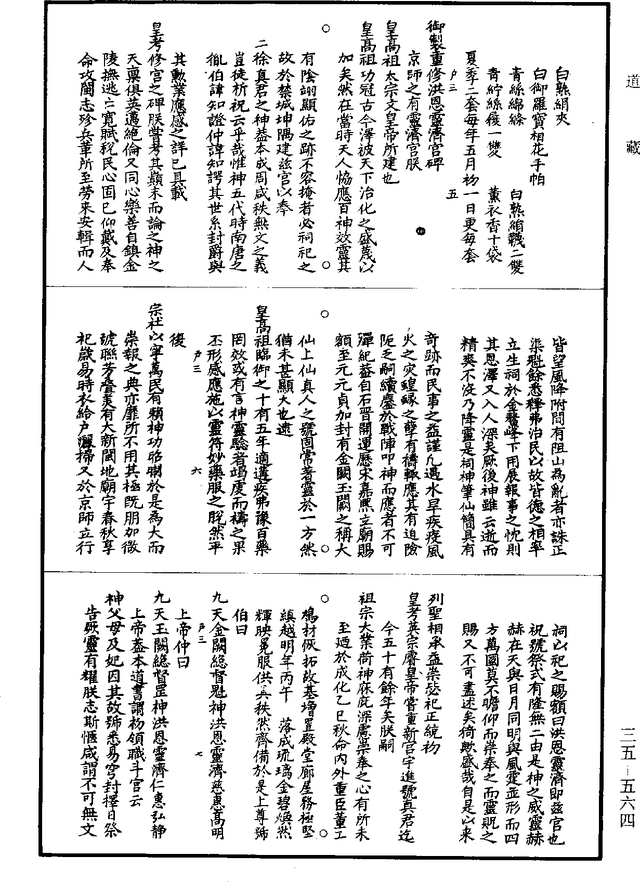 道藏
白熟絹夾
白御羅寶相花手帕
青絲綿絛
青紵絲襪一雙　白熟絹襪二雙
薰衣香十袋
夏季二套每年五月初一日更每套
戶三　五
御製重修洪恩靈濟宮碑
京師之有靈濟宮朕
皇高祖太宗文皇帝所建也
皇高祖功冠古今澤被天下治化之盛蔑以
加矣然在當時天人恊應百神效靈其
有陰翊顯佑之跡不容掩者必祠祀之
故於禁城坤隅建茲宮以奉
二徐真君之神葢本成周咸秩無文之義
豈徒祈祝云乎哉惟神五代時南唐之
胤伯諱知證仲諱知諤其世系封爵與
其勲業應感之詳已具載
皇考修宮之碑朕嘗考其顛末而論之神之
天稟俱英邁絶倫又同心樂善自鎮金
陵撫逃亡寬賦稅民心固已仰戴及奉
命攻閩志珍兵革所至勞來安輯而人
皆望風降附間有阻山為亂者亦誅正
渠魁餘悉釋弗治民以故皆德之相率
立生祠於金鰲峰下用展報事之忱則
其恩澤又入人深矣厥後神雖云逝而
精爽不沒乃降靈是祠神筆仙簡具有
奇跡而民事之益謹凡遇水旱疾疫風
火之灾蝗蝝之孽有禱輒應其有迫險
阨乏嗣續鏖於戰陣叩神而應者不可
殫紀葢自石晉開運歷宋嘉熙立廟賜
額至元元貞加封有金闕玉闕之稱大
仙上仙真人之號固常著靈於一方然
猶未甚顯大也逮
皇高祖臨御之十有五年適遘疾弗豫百藥
罔效或有言神靈驗者竭虔而禱之果
丕形感應施以靈符妙藥服之脫然平
戶三　六
後
宗社以寧萬民有賴神功昭關於是為大而
崇報之典亦靡所不用其極既朋加徽
號聯芳疊美有大新閩地廟宇春秋享
祀歲易時衣給戶灑掃又於京師立行
祠以祀之賜額曰洪恩靈濟即茲宮也
祝號祭式有隆無二由是神之威靈赫
赫在天與日月同明與風霆並形而四
方萬國莫不瞻仰而崇奉之而靈貺之
賜又不可盡述矣猗歟盛哉自是以來
列聖相承益崇毖祀正統初
皇考英宗睿皇帝嘗重新宮宇進號真君迄
今五十有餘年矣朕嗣
祖宗大業荷神庥庇深慮崇奉之心有所未
至廼於成化乙巳秋命内外重臣董工
鳩材俶拓故基增置殿堂廊屋務極堅
縝越明年丙午　落成琉璃金碧煥然
輝映冕服供具秩然齊備於是上尊號
伯曰
九天金闕總督魁神洪恩靈濟慈惠高明
戶三　七
上帝仲曰
九天玉闕總督罡神洪恩靈濟仁惠弘静
上帝葢本道書謂初領職斗宮云
神父母及妃因其故號悉易穹封擇日祭
告厥靈有耀朕志斯愜咸謂不可無文
三五－五六四